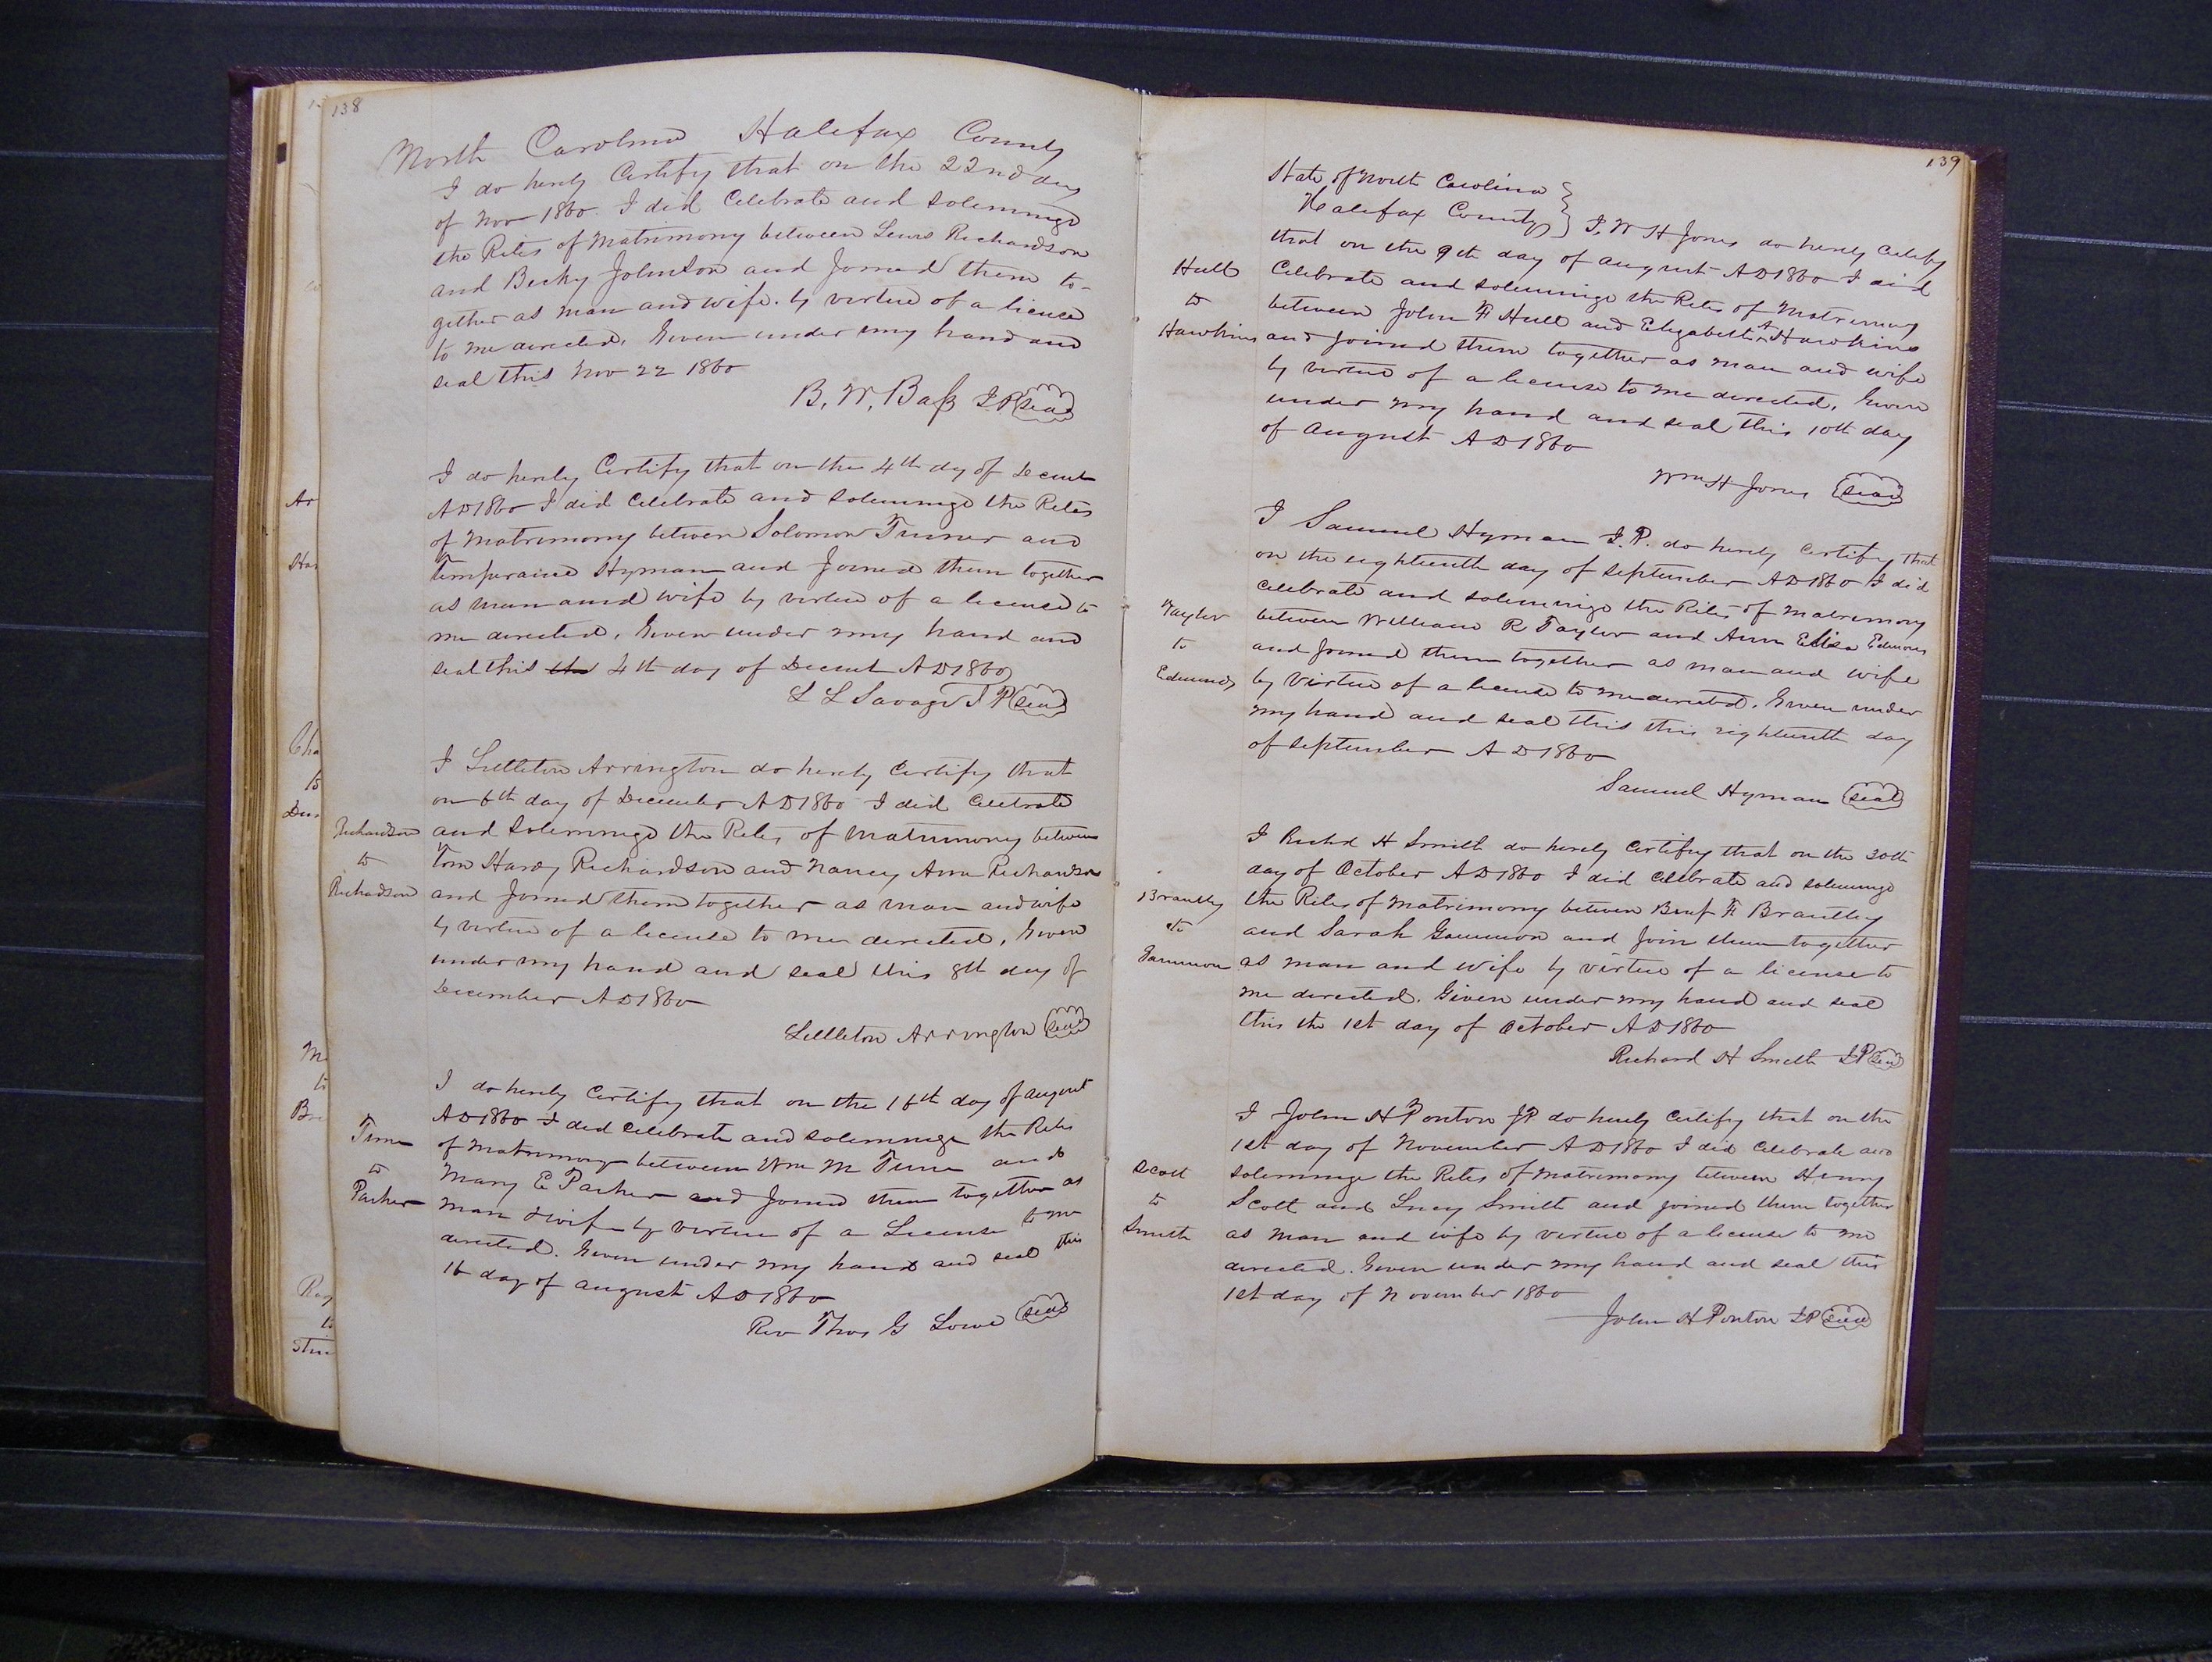 138
North Carolina Halifax County
I do herely Certify that on the 22nd day
of Nov 1860. I did Celebrate and solemnize
the Rites of Matrimony between Lewis Richardson
and Becky Johnson and Joined them to-
gether as man and wife. by virtue of a license
to me directed. Given under my hand and
seal this Nov 22 1860
B. W. Bass J P seal
I do herely Certify that on the 4th dy of Decmb
AD 1860 I did Celebrate and Solemnize the Rites
of Matrimony between Solomon Turner and
Temperance Hyman and Joined them together
as man and wife by virtue of a license to
me directed. Given under my hand and
seal this the 4th day of Decemb AD 1860
L L Savage J P seal
I Littleton Arrington do herely Certify that
on 6th day of December AD 1860 I did Celebrate
Richardson and Solemnize the Rites of Matrimony between
to Tom Hardy Richardson and Nancy Ann Richardson
Richardson and Joined them together as man and wife
by virtue of a license to me directed. Given
under my hand and seal this 8th day of
December AD 1860
Littleton Arrington seal
I do herely Certify that on the 16th day of August
AD 1860 I did celebrate and solemnize the Rites
of Matrimony between Wm M
to Mary E Parker and Joined them together as
Parker man & wife by virtue of a License to me
directed. Given under my hand and seal this
16 day of August AD 1860
Rev Thos G Lowe seal
139
State of North Carolina
Halifax County I, W H Jones do herely certify
that on the 9th day of August AD 1860 I did
Hull Celebrate and solemnize the Rites of Matrimony
to between John F Hull and Elizabeth A Hawkins
Hawkins and Joined them together as man and wife
by virtue of a license to me directed. Given
under my hand and seal this 10th day
of August AD 1860
Wm H Jones seal
I Samuel Hyman J.P. do herely Certify that
on the eighteenth day of September AD 1860 I did
celebrate and solemnize the Rites of Matrimony
Taylor between William R Taylor and Ann Eliza Edmonds
to and Joined them together as man and wife
Edmunds by virtue of a license to me directed. Given under
my hand and seal this this eighteenth day
of September AD 1860
Samuel Hyman seal
I Richd H Smith do herely Certify that on the 30th
day of October AD 1860 I did celebrate and solemnize
Brantley the Rites of Matrimony between Benj F Brantley
to and Sarah Gammon and Join them together
Gammon as man and wife by virtue of a license to
me directed. Given under my hand and seal
this the 1st day of October AD 1860
Richard H Smith J P seal
I John H Ponton JP do herely Certify that on the
1st day of November AD 1860 I did Celebrate and
Scott solemnize the Rites of Matrimony between Henry
to Scott and Lucy Smith and joined them together
Smith as man and wife by virtue of a license to me
directed. Given under my hand and seal this
1st day of November 1860
John H Ponton J P seal